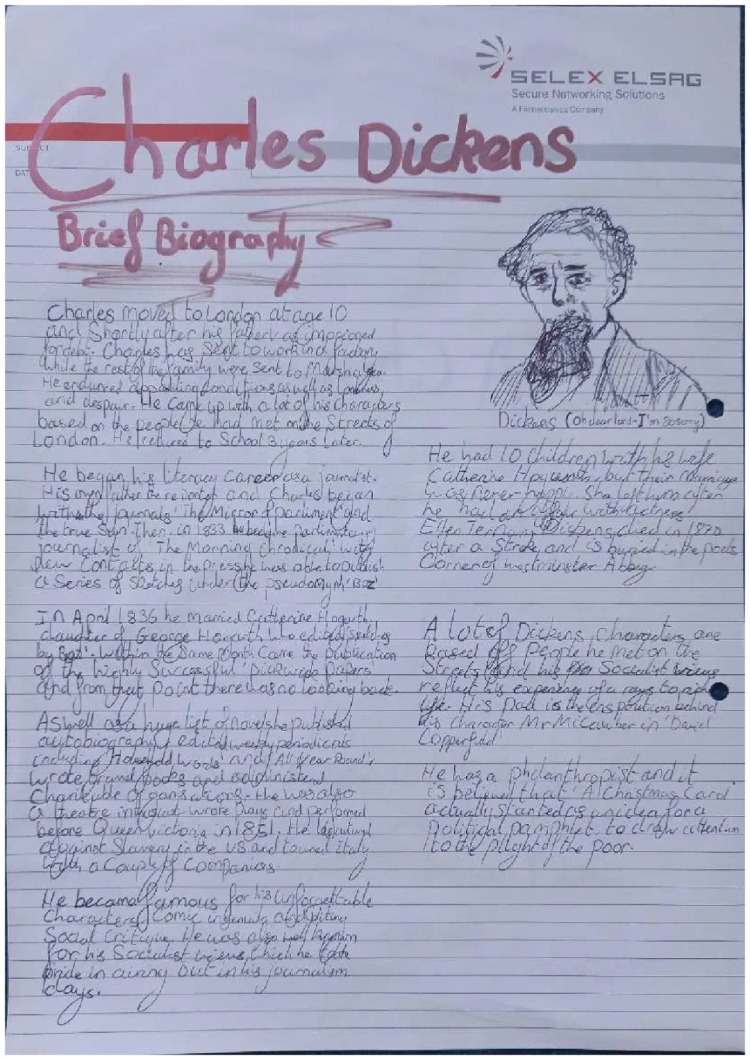 SELEX ELSAG
Secure Networking Solutions
A Finmeccanica Company
SUBJECT
DATE
Charles Dickens
Brief Biography
Charles moved to London at age 10
and Shortly after his father was imprisoned
for debt. Charles was sent to work in a factory
while the rest of the family were sent to
He endured appalling conditions as well as
and despair. He came up with a lot of his characters
based on the people he had met on the Streets of
London. He to School 3 years later.
Dickens (Oh dear lord - I'm so sorry)
He began his literary career as a journalist.
His own father and Charles began
with the journals 'The Mirror of and
the true Sun. Then in 1833 he became parliamentary
journalist of The Morning Chronical' with
new contacts in the press he was able to publish
a Series of sketches under the pseudonym 'Boz'
In April 1836 he married Catherine Hogarth,
daughter of George Hogarth who edited
by Boz'. Within the same month came the publication
of the highly Successful
and from that point there was no looking back.
As well as a huge list of novels he published
autobiography, edited weekly periodicals
including Household words' and 'All Year Round'
wrote travel books and
. He was also
a theatre wrote plays and performed
before Queen Victoria in 1851. He
against Slavery in the US and toured italy
with a couple of companions
He became famous for his unforgettable
characters, Comic and biting
Social Critique. He was also well known
for his Socialist views, which he took
pride in but in his journalism
days.
He had 10 children with his wife
Catherine but their marriage
was never happy. She left him after
he had an affair with actress
Ellen Dickens died in 1870
after a Stroke and is buried in the poets
Corner of westminster Abbey
A lot of Dickens Characters are
based off people he met on the
Streets and his Socialist views
reflect his experience of a rags to
life. His Dad is the behind
his character Mr Micawber in 'David
Copperfield'
He was a philanthropist and it
is believed that 'A Christmas Carol'
actually started as an idea for a
Political pamphlet, to draw attention
to the plight of the poor.